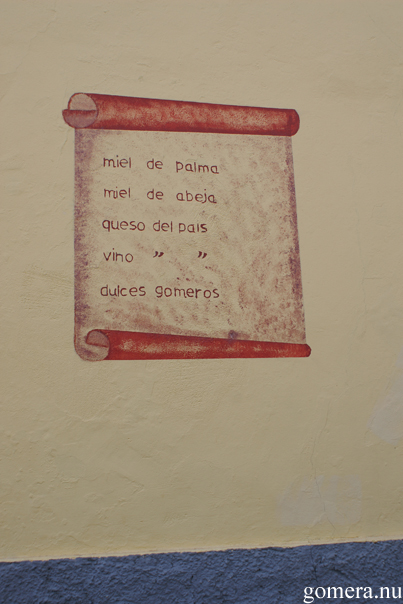 miel de palma
miel de abeja
queso del pais
vino " "
dulces gomeros
gomera.nu